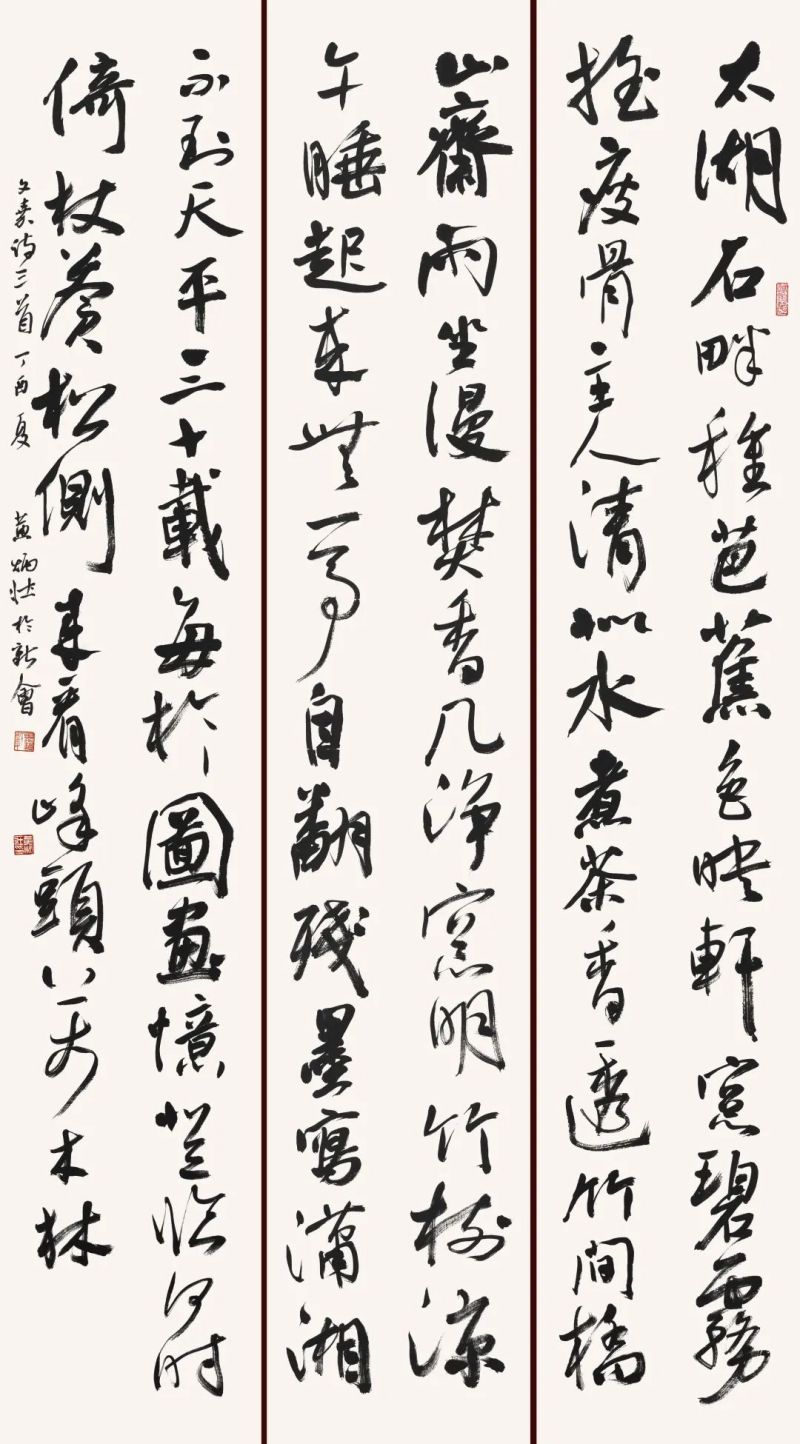 太湖石畔種芭蕉色映軒窓碧霧
搖瘦骨主人清似水煮茶香透竹間橋
山齋雨坐漫焚香几淨窓明竹樹涼
午睡起來無一事自翻殘墨寫瀟湘
不到天平三十載每於圖畫憶登臨何時
倚杖蒼松側來看峰頭木林
文嘉诗三首 丁酉夏 黃炳壮於新會